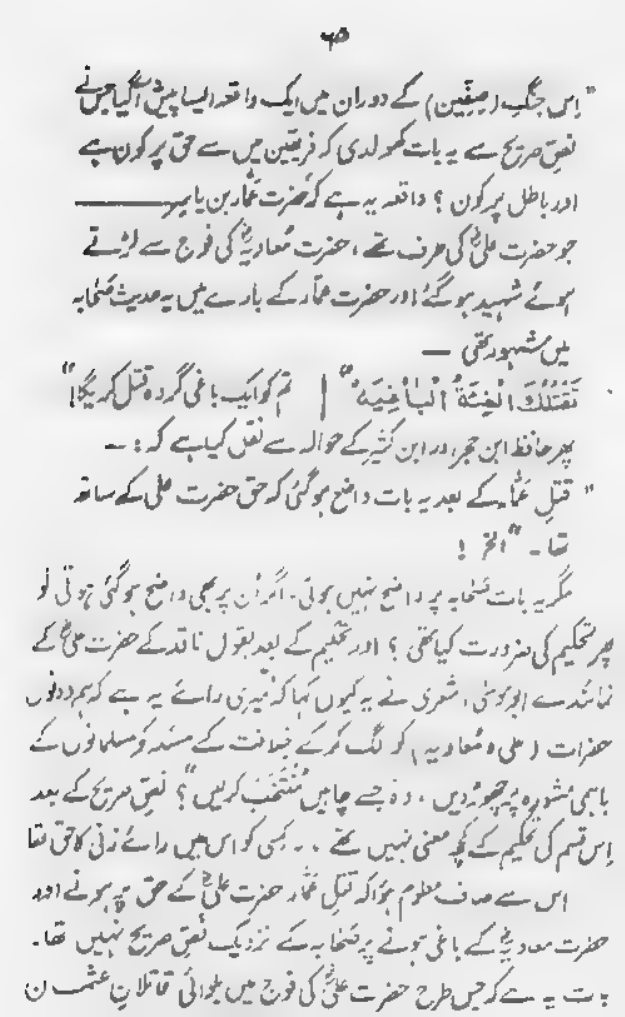 ۶۵
"اِس جنگِ (صِفّین) کے دوران میں ایک واقعہ ایسا پیش آگیا جس نے
نصِّ صریح سے یہ بات کھولدی کہ فریقین میں سے حق پر کون ہے
اور باطل پر کون ؟ واقعہ یہ ہے کہ حضرت عَمّار بن یاسر ———
جو حضرت علیؓ کی طرف تھے ، حضرت مُعاویہؓ کی فوج سے لڑتے
ہوئے شہید ہوگئے اور حضرت عمّار کے بارے میں یہ حدیث صَحابہ
میں مشہور تھی —
تَقْتُلُكَ الْفِئَةُ الْبَاغِيَهُ" | تم کو ایک باغی گروہ قتل کریگا!"
پھر حافظ ابن حجر اور ابن کثیر کے حوالہ سے نقل کیا ہے کہ : —
" قتلِ عَمّار کے بعد یہ بات واضح ہوگئی کہ حق حضرت علی کے ساتھ
تھا ۔ " الخ !
مگر یہ بات صَحابہ پر واضح نہیں ہوئی ۔ اگر اُن پر بھی واضح ہوگئی ہوتی تو
پھر تحکیم کی ضرورت کیا تھی ؟ اور تحکیم کے بعد بقول ناقد کے حضرت علیؓ کے
نمائندے ابو موسٰی اشعری نے یہ کیوں کہا کہ "میری رائے یہ ہے کہ ہم دونوں
حضرات (علی و مُعاویہ) کو الگ کرکے خلافت کے مسئلہ کو مسلمانوں کے
باہمی مشورہ پر چھوڑ دیں ، وہ جسے چاہیں مُنْتَخَب کرلیں " ؟ نصِّ صریح کے بعد
اِس قسم کی تحکیم کے کچھ معنی نہیں تھے ۔ نہ کسی کو اس میں رائے زنی کا حق تھا
اس سے صاف معلوم ہؤا کہ قتلِ عَمّار حضرت علیؓ کے حق پر ہونے اور
حضرت معاویہؓ کے باغی ہونے پر صَحابہ کے نزدیک نصِّ صریح نہیں تھا ۔
بات یہ ہے کہ جس طرح حضرت علیؓ کی فوج میں بلوائی قاتلانِ عثمان